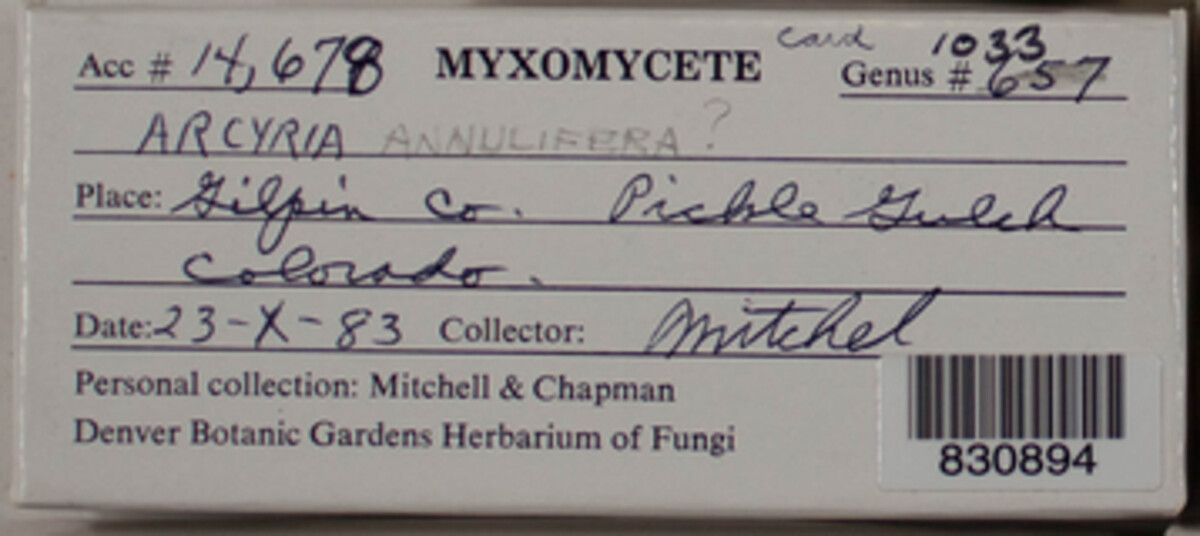 Acc # 14,678 MYXOMYCETE card 1033
Genus # 657
ARCYRIA ANNULIFERA?
Place: Gilpin Co. Pickle Gulch
Colorado.
Date: 23-X-83 Collector: Mitchel
Personal collection: Mitchell & Chapman
Denver Botanic Gardens Herbarium of Fungi
830894